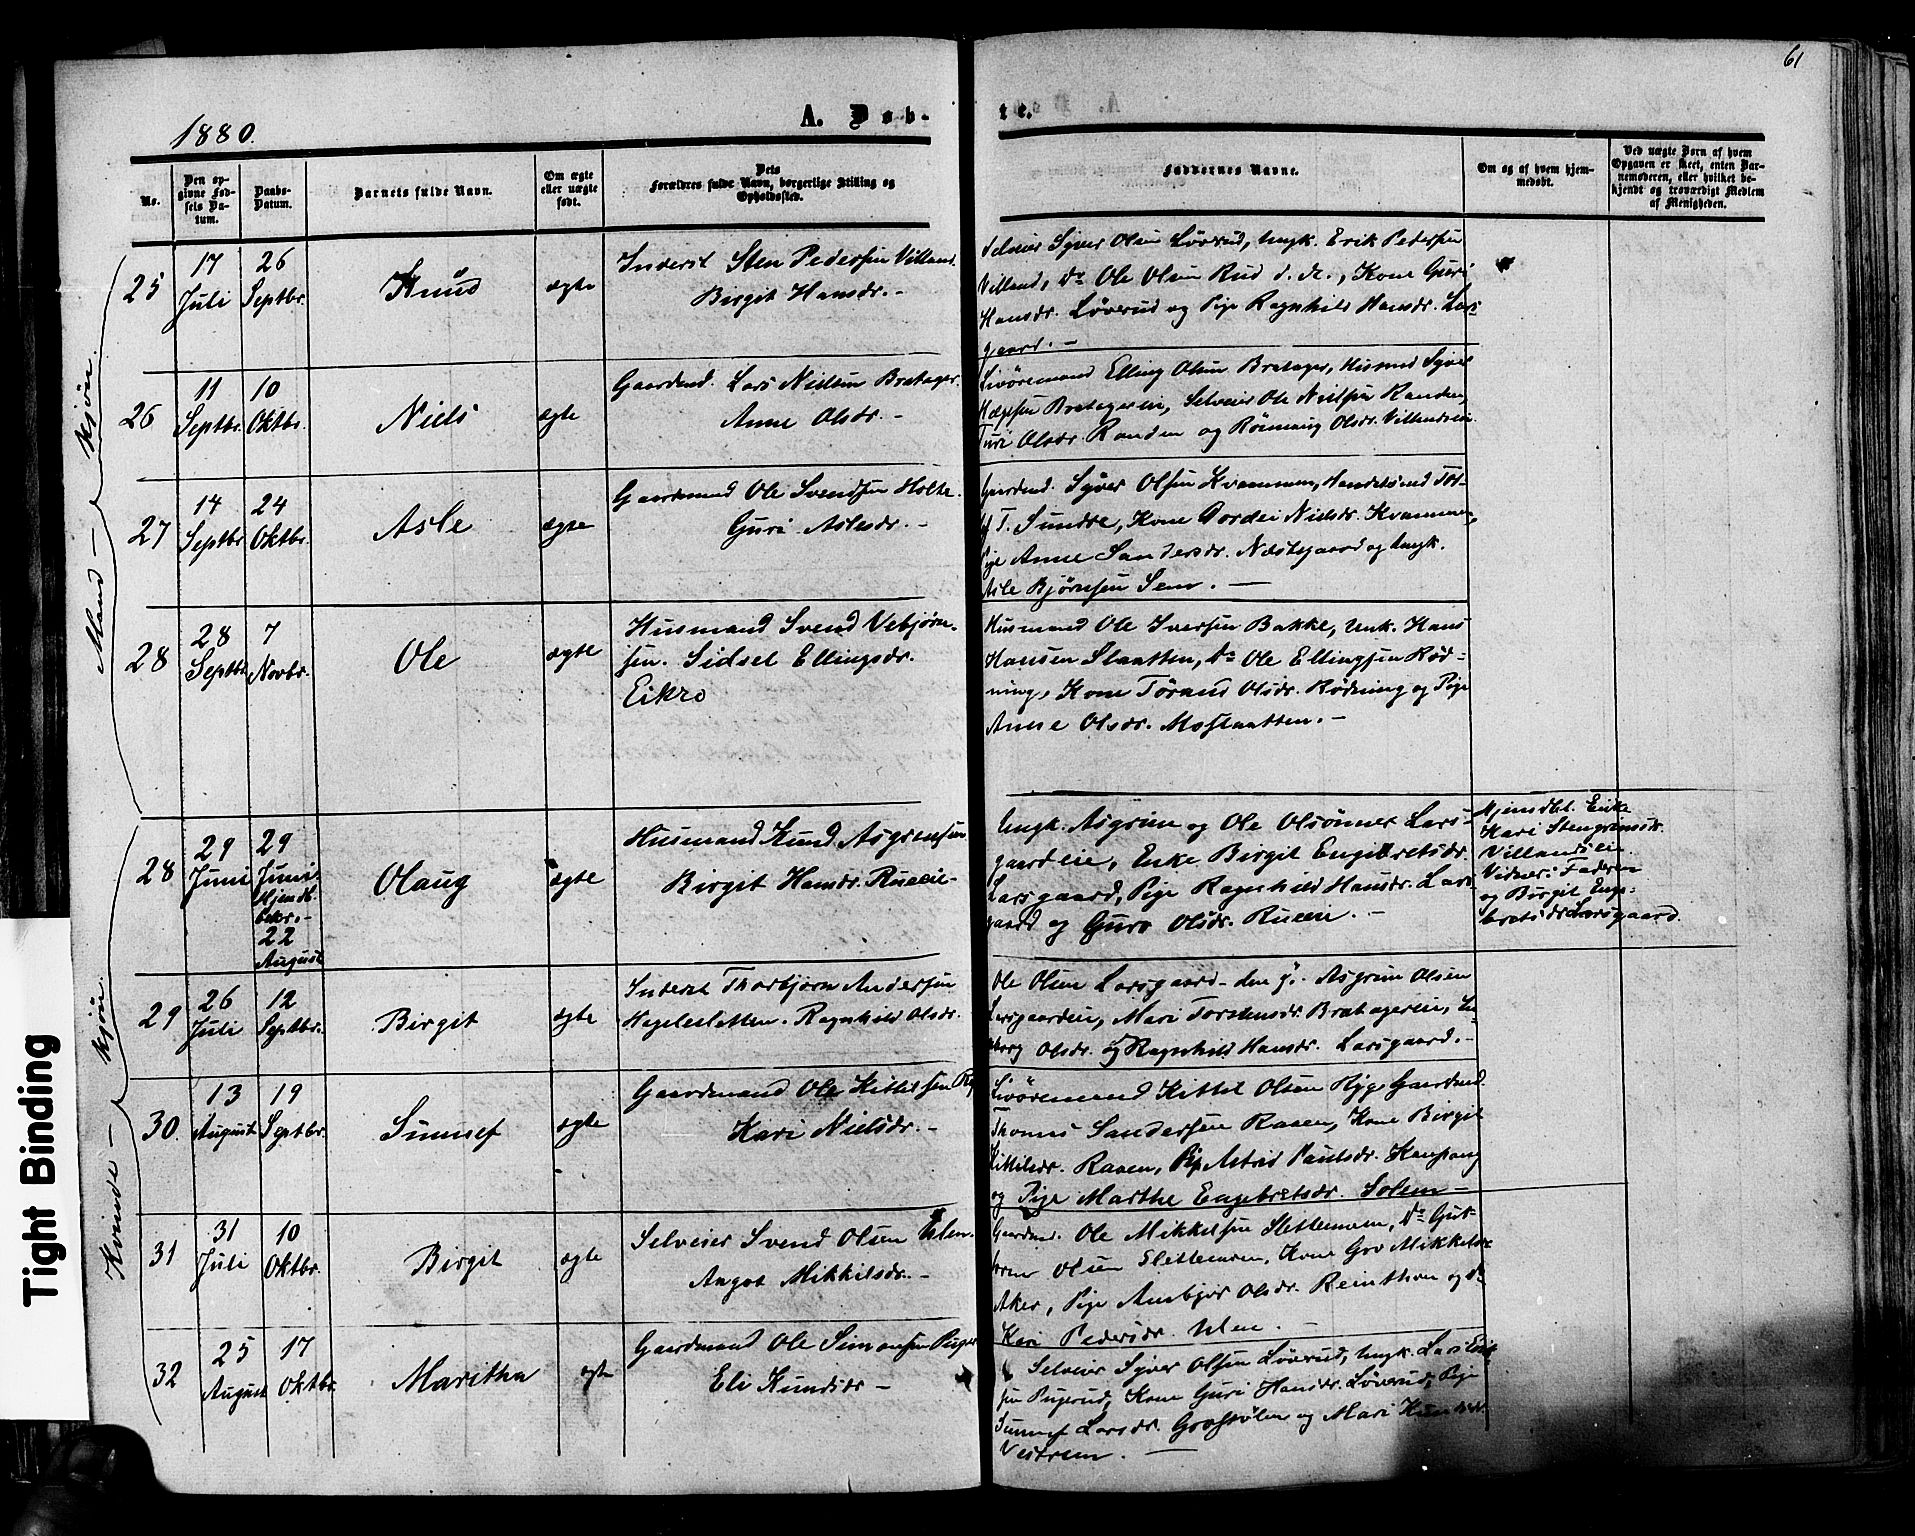 61
1880.
A. Døb-
te.
No.
Den op-
givne Fød-
sels Da-
tum.
Daabs-
Datum.
Barnets fulde Navn.
Om ægte
eller uægte
født.
Dets
Forældres fulde Navn, borgerlige Stilling og
Opholdssted.
Faddernes Navne.
Om og af hvem hjem-
medøbt.
Ved uægte Børn af hvem
Opgaven er skeet, enten Bar-
nemoderen, eller hvilket be-
kjendt og troværdigt Medlem
af Menigheden.
Mand - kjøn.
25
17
Juli
26
Septbr.
Knud
ægte
Inderst Sten Pedersen Villand.
Birgit Hansdr. -
Selveier Syver Olsen Løverud, Ungk. Erik Pedersen
Villand, do Ole Olsen Rud d. æ., Kone Guri
Hansdr. Løverud og Pige Ragnhild Hansdr. Lars-
gaard. -
26
11
Septbr.
10
Oktbr.
Niels
ægte
Gaardmd. Lars Nielsen Bratager.
Anne Olsdr. -
Livøremand Elling Olsen Bratager, Husmd Syver
Bratagerei, Selveier Ole Nielsen Randen,
Turi Olsdr. Randen og Rønnaug Olsdr. Villandseie.
27
14
Septbr
24
Oktbr.
Asle
ægte
Gaardmand Ole Svendsen Holte.
Guri Aslesdr. -
Gaardmd. Syver Olsen Kvammen, Handelsmd Tol-
lef T. Sundre, Kone Gordei Nielsdr. Kvammen,
Pige Anne Sandersdr. Næstegaard og Ungk.
Asle Bjørnsen Sem. -
28
28
Septbr
7
Novbr.
Ole
ægte
Husmand Svend Vebjørn-
sen. Sidsel Ellingsdr.
Eikro
Husmand Ole Iversen Bakke, Unk. Hans
Hansen Slaatten, do Ole Ellingsen Rød-
ning, Kone Tørand Olsdr. Rødning og Pige
Anne Olsdr. Moslaatten. -
Kvinde - kjøn.
28
29
Juni
29
Juni
Hjemdb.
bekr.-
22
August
Olaug
ægte
Husmand Knud Asgrimsen
Birgit Hansdr. Rueeie -
Ungk. Asgrim og Ole Olsønner Lars-
gaardeie, Enke Birgit Engebretsdr.
Larsgaard, Pige Ragnhild Hansdr. Lars-
gaard og Guro Olsdr. Rueeie. -
Hjemdbt. Enke
Kari Stengrimsdr.
Villandseie
Vidner: Faderen
og Birgit Enge-
bretsdr Larsgaard.
29
26
Juli
12
Septbr.
Birgit
ægte
Inderst Thorbjørn Andersen
Heglesletten. Ragnhild Olsdr.
Ole Olsen Larsgaard den y. Asgrim Olsen
Larsgaardeie, Mari Torstensdr. Bratagereie, In-
geborg Olsdr. og Ragnhild Hansdr. Larsgaard. -
30.
13
August
19
Septbr.
Sunnef
ægte
Gaardmand Ole Kittelsen
Kari Nielsdr. -
Livøremand Kittel Olsen Ryge Gaardmd.
Thomas Sandersen Raaen, Kone Birgit
Kittilsdr. Raaen, Pige Astrid Paulsdr. Kaupang
og Pige Marthe Engebretsdr. Solem -
31
31
Juli
10
Oktbr.
Birgit
ægte
Selveier Svend Olsen Uslen.
Angot Mikkilsdr. -
Gaardmd. Ole Mikkelsen Slettemoen, do Gut-
torm Olsen Slettemoen, Kone Gro Mikkelsdr
Aker, Pige Ambjør Olsdr. Reinthon og do
Kari Pedersdr. Uslen. -
32
25
August
17
Oktbr.
Maritha
ægte
Gaardmand Ole Simonsen
Eli Knudsdr -
Selveier Syver Olsen Løverud, Ungk. Lars
sen Pugerud, Kone Guri Hansdr. Løverud, Pige
Sunnef Larsdr. Grøstølen og Mari Knudsdr.
Vestreim. -
Tight Binding